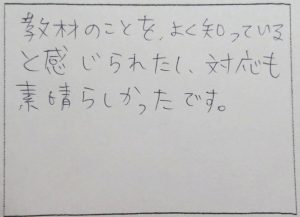 教材のことを、よく知っている
と感じられたし、対応も
素晴らしかったです。